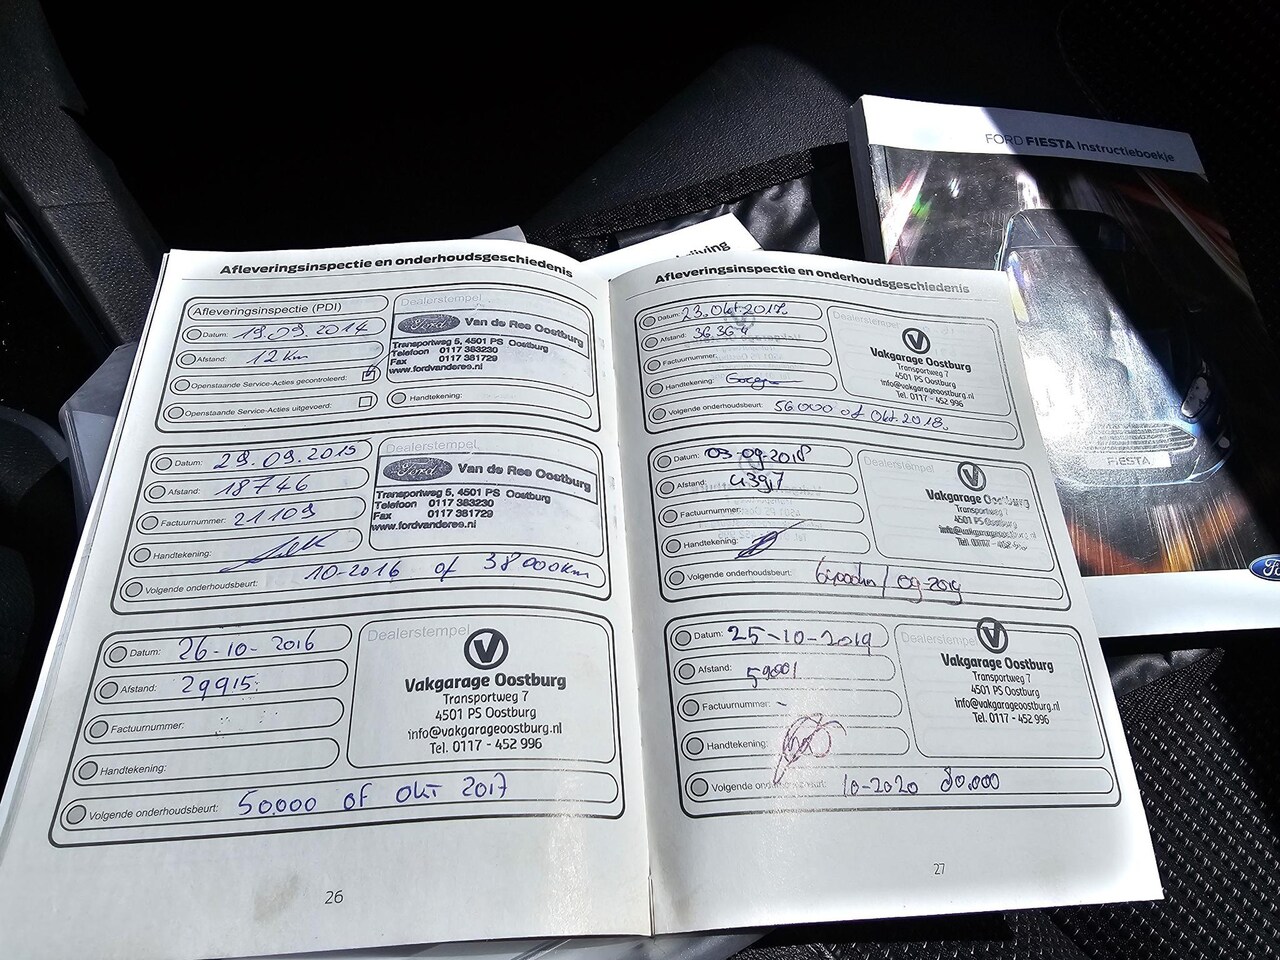 FORD FIESTA Instructieboekje
FIESTA
Afleveringsinspectie en onderhoudsgeschiedenis
Afleveringsinspectie (PDI)
Datum: 19.09.2014
Afstand: 12 Km
Openstaande Service-Acties gecontroleerd:
Openstaande Service-Acties uitgevoerd:
Dealerstempel
Ford Van de Ree Oostburg
Transportweg 5, 4501 PS Oostburg
Telefoon 0117 383230
Fax 0117 381729
www.fordvanderee.nl
Handtekening:
Datum: 29.09.2015
Afstand: 18746
Factuurnummer: 21109
Handtekening:
Volgende onderhoudsbeurt: 10-2016 of 38000km
Dealerstempel
Ford Van de Ree Oostburg
Transportweg 5, 4501 PS Oostburg
Telefoon 0117 383230
Fax 0117 381729
www.fordvanderee.nl
Datum: 26-10-2016
Afstand: 29915
Factuurnummer:
Handtekening:
Volgende onderhoudsbeurt: 50.000 of okt 2017
Dealerstempel
Vakgarage Oostburg
Transportweg 7
4501 PS Oostburg
info@vakgarageoostburg.nl
Tel. 0117 - 452 996
26
Afleveringsinspectie en onderhoudsgeschiedenis
Datum: 23.Okt.2017
Afstand:
Factuurnummer:
Handtekening:
Volgende onderhoudsbeurt: 56.000 of Okt.2018.
Dealerstempel
Vakgarage Oostburg
Transportweg 7
4501 PS Oostburg
info@vakgarageoostburg.nl
Tel. 0117 - 452 996
Datum: 03-09-2018
Afstand: 43917
Factuurnummer:
Handtekening:
Volgende onderhoudsbeurt: / 09-2019
Dealerstempel
Vakgarage Oostburg
Transportweg 7
4501 PS Oostburg
info@vakgarageoostburg.nl
Tel. 0117 - 452
Datum: 25-10-2019
Afstand: 59001
Factuurnummer: -
Handtekening:
Volgende onderhoudsbeurt: 10-2020 80.000
Dealerstempel
Vakgarage Oostburg
Transportweg 7
4501 PS Oostburg
info@vakgarageoostburg.nl
Tel. 0117 - 452 996
27